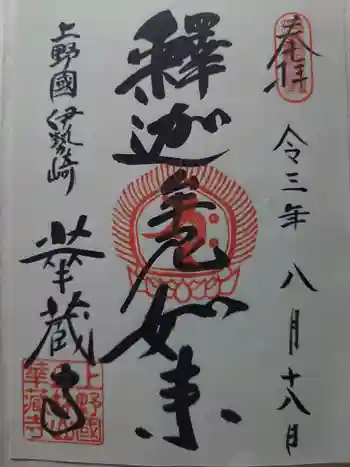 奉拝
令三年八月十八日
釋迦無如来
上野國伊勢崎
華蔵寺
上野國
華蔵寺